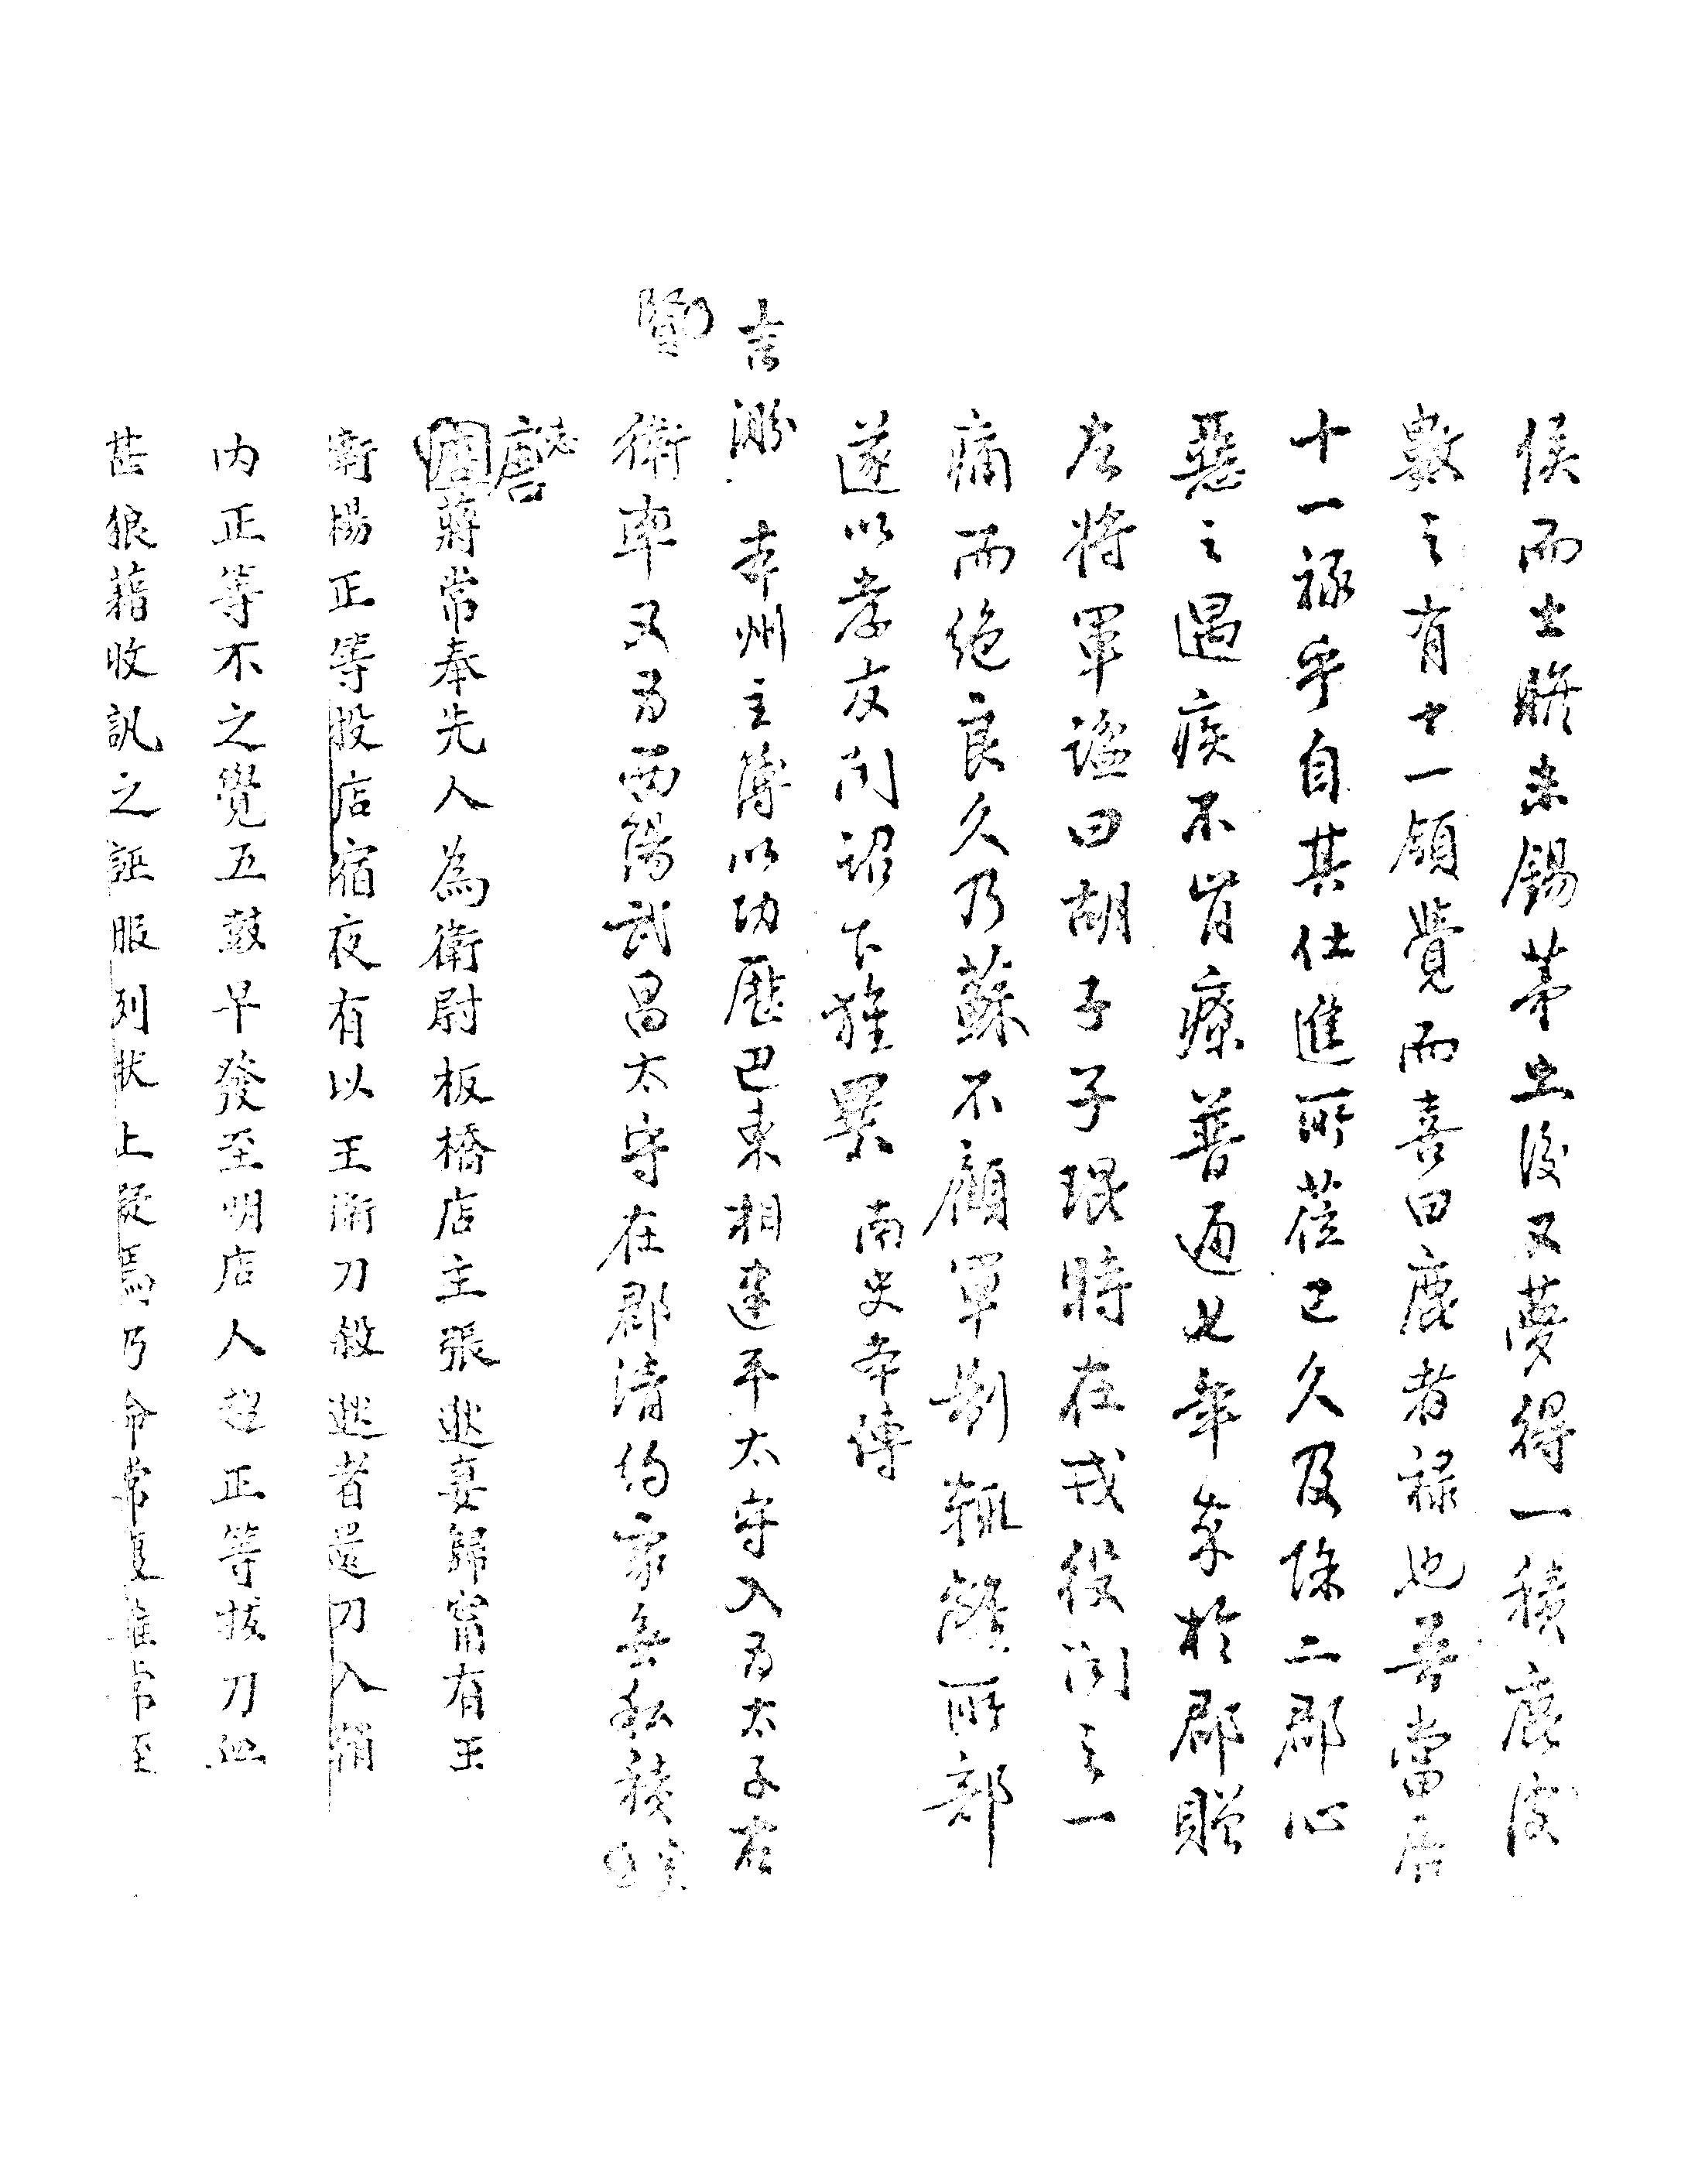 侯而士瞻未錫茅土後又夢得一積鹿皮
數之有十一領覺而喜曰鹿者祿也吾當居
十一祿乎自其仕進所莅已久及除二郡心
惡之遇疾不肯療普通七年卒於郡贈
左將軍諡曰胡子子琨時在戎役聞之一
痛而絶良久乃蘇不顧軍制輒離所部
遂以孝友聞詔下旌異 南史本傳
吉瀚 本州主簿以功歷巴東相建平太守入為太子右
衛率又為西陽武昌太守在郡清約家無私積
唐志
蔣常奉先人為衛尉板橋店主張逖妻歸甯有王
衛楊正等投店宿夜有以王衛刀殺逖者還刀入鞘
内正等不之覺五鼓早發至明店人趕正等拔刀血
甚狼藉收訊之誣服列狀上疑焉乃命常覆推常至